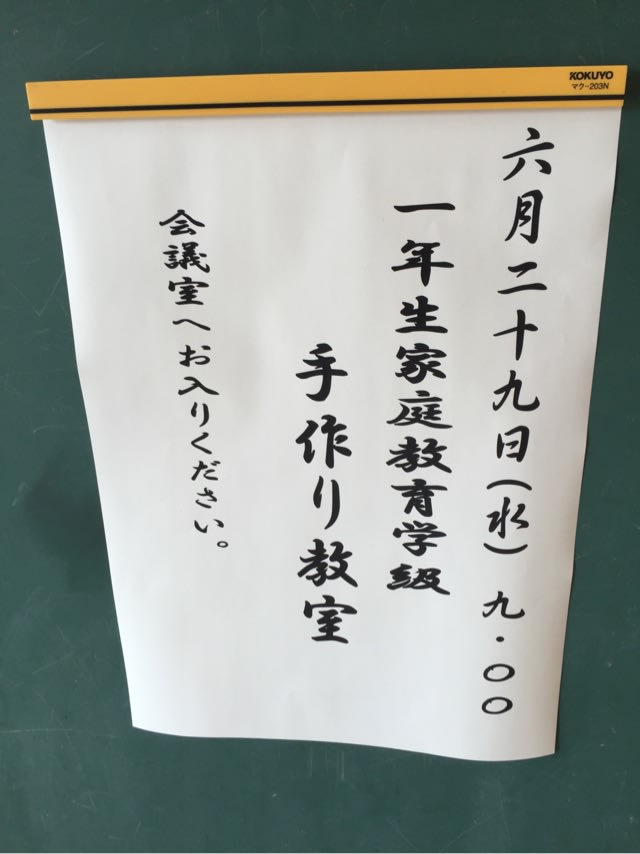 KOKUYO
マク-203N
六月二十九日(水) 九・〇〇
一年生家庭教育学級
手作り教室
会議室へお入りください。